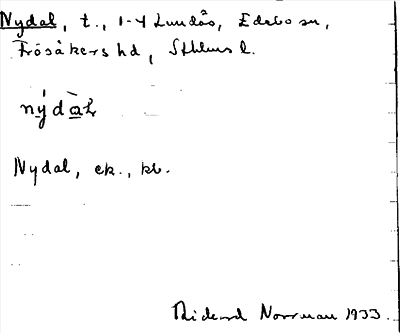 Nydal, t., 1-4 Lundås, Edebo sn,
Frösåkers hd, Sthlms l.
nýdàɫ
Nydal, ek., kb.
Rickard Norrman 1933.